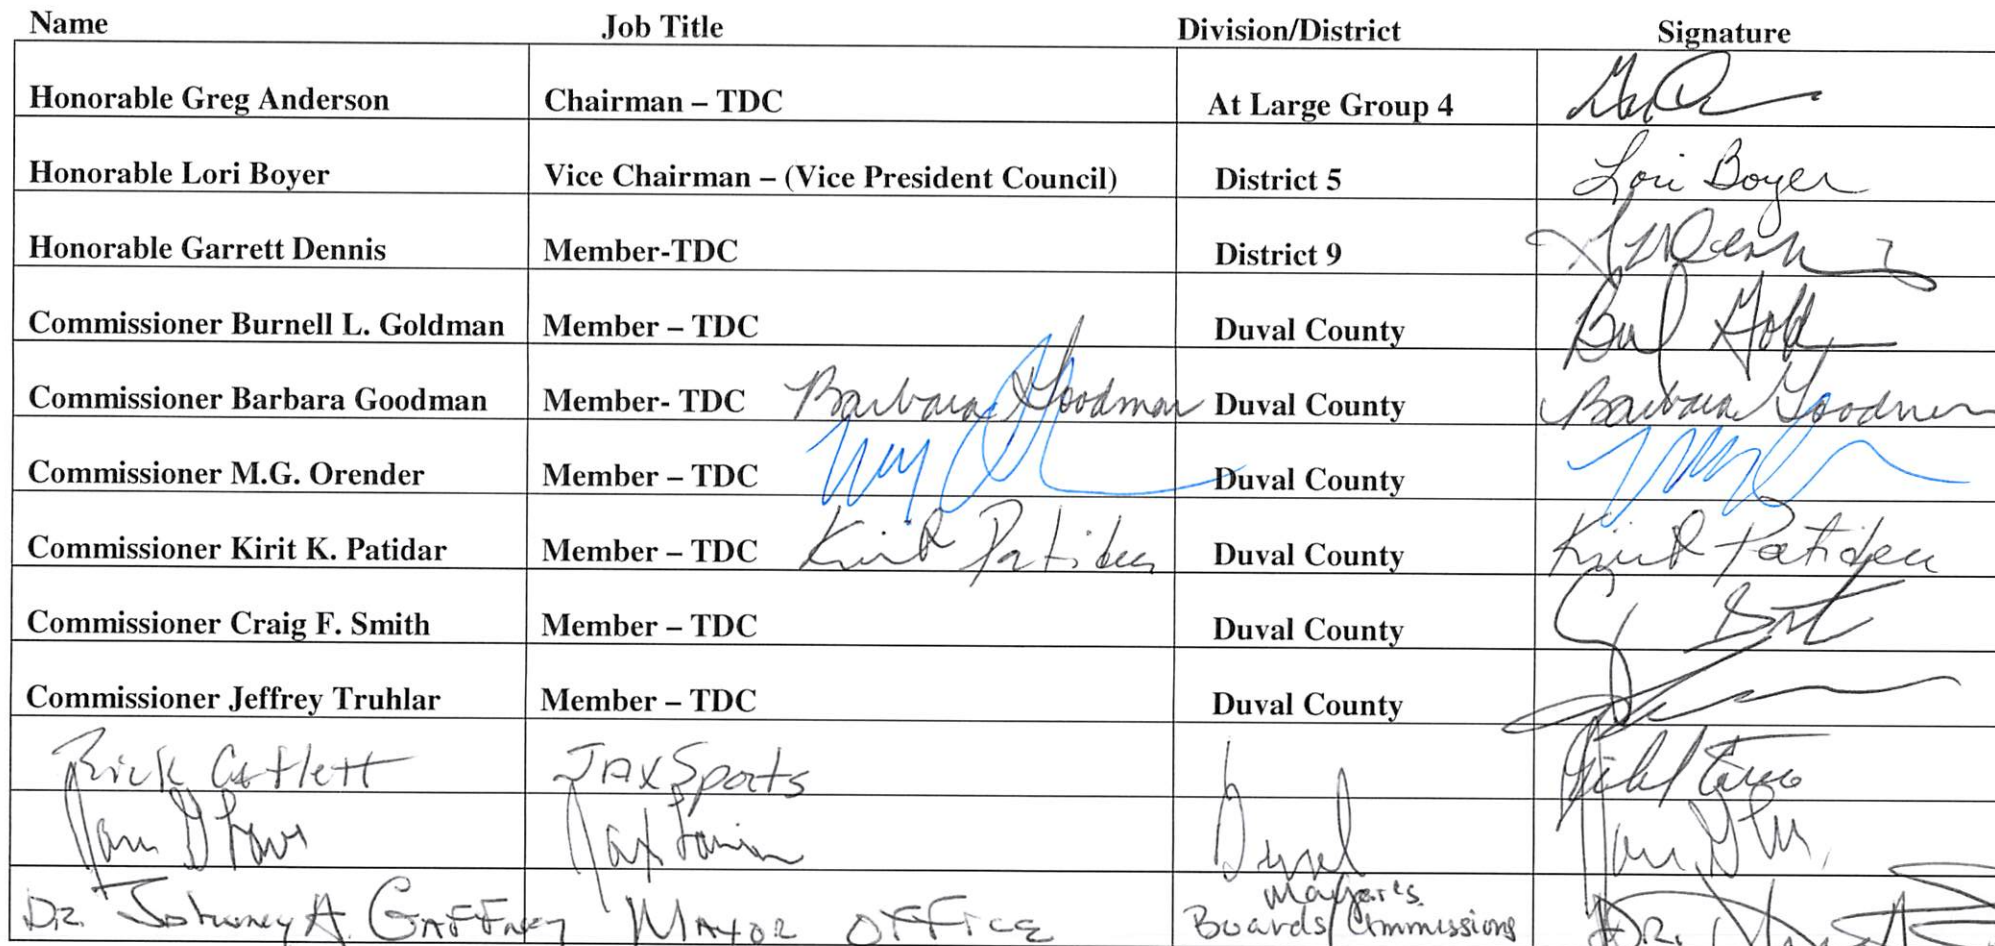 Name Job Title Division/District Signature
Honorable Greg Anderson Chairman – TDC At Large Group 4
Honorable Lori Boyer Vice Chairman – (Vice President Council) District 5 Lori Boyer
Honorable Garrett Dennis Member-TDC District 9
Commissioner Burnell L. Goldman Member – TDC Duval County
Commissioner Barbara Goodman Member- TDC Barbara Goodman Duval County Barbara Goodman
Commissioner M.G. Orender Member – TDC Duval County
Commissioner Kirit K. Patidar Member – TDC Kirit Patidar Duval County Kirit Patidar
Commissioner Craig F. Smith Member – TDC Duval County
Commissioner Jeffrey Truhlar Member – TDC Duval County
Rick Catlett JAX Sports
Duval
Dr. Johnney A. GAFFNEY MAYOR OFFICE Mayor's Boards/Commissions DR.